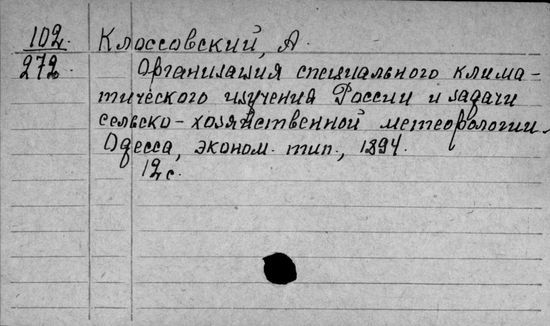 102. Клоссовский, А.
272. Организация специального клима-
тического изучения России и задачи
сельско-хозяйственной метеорологии.
Одесса, эконом. тип., 1894.
12 с.